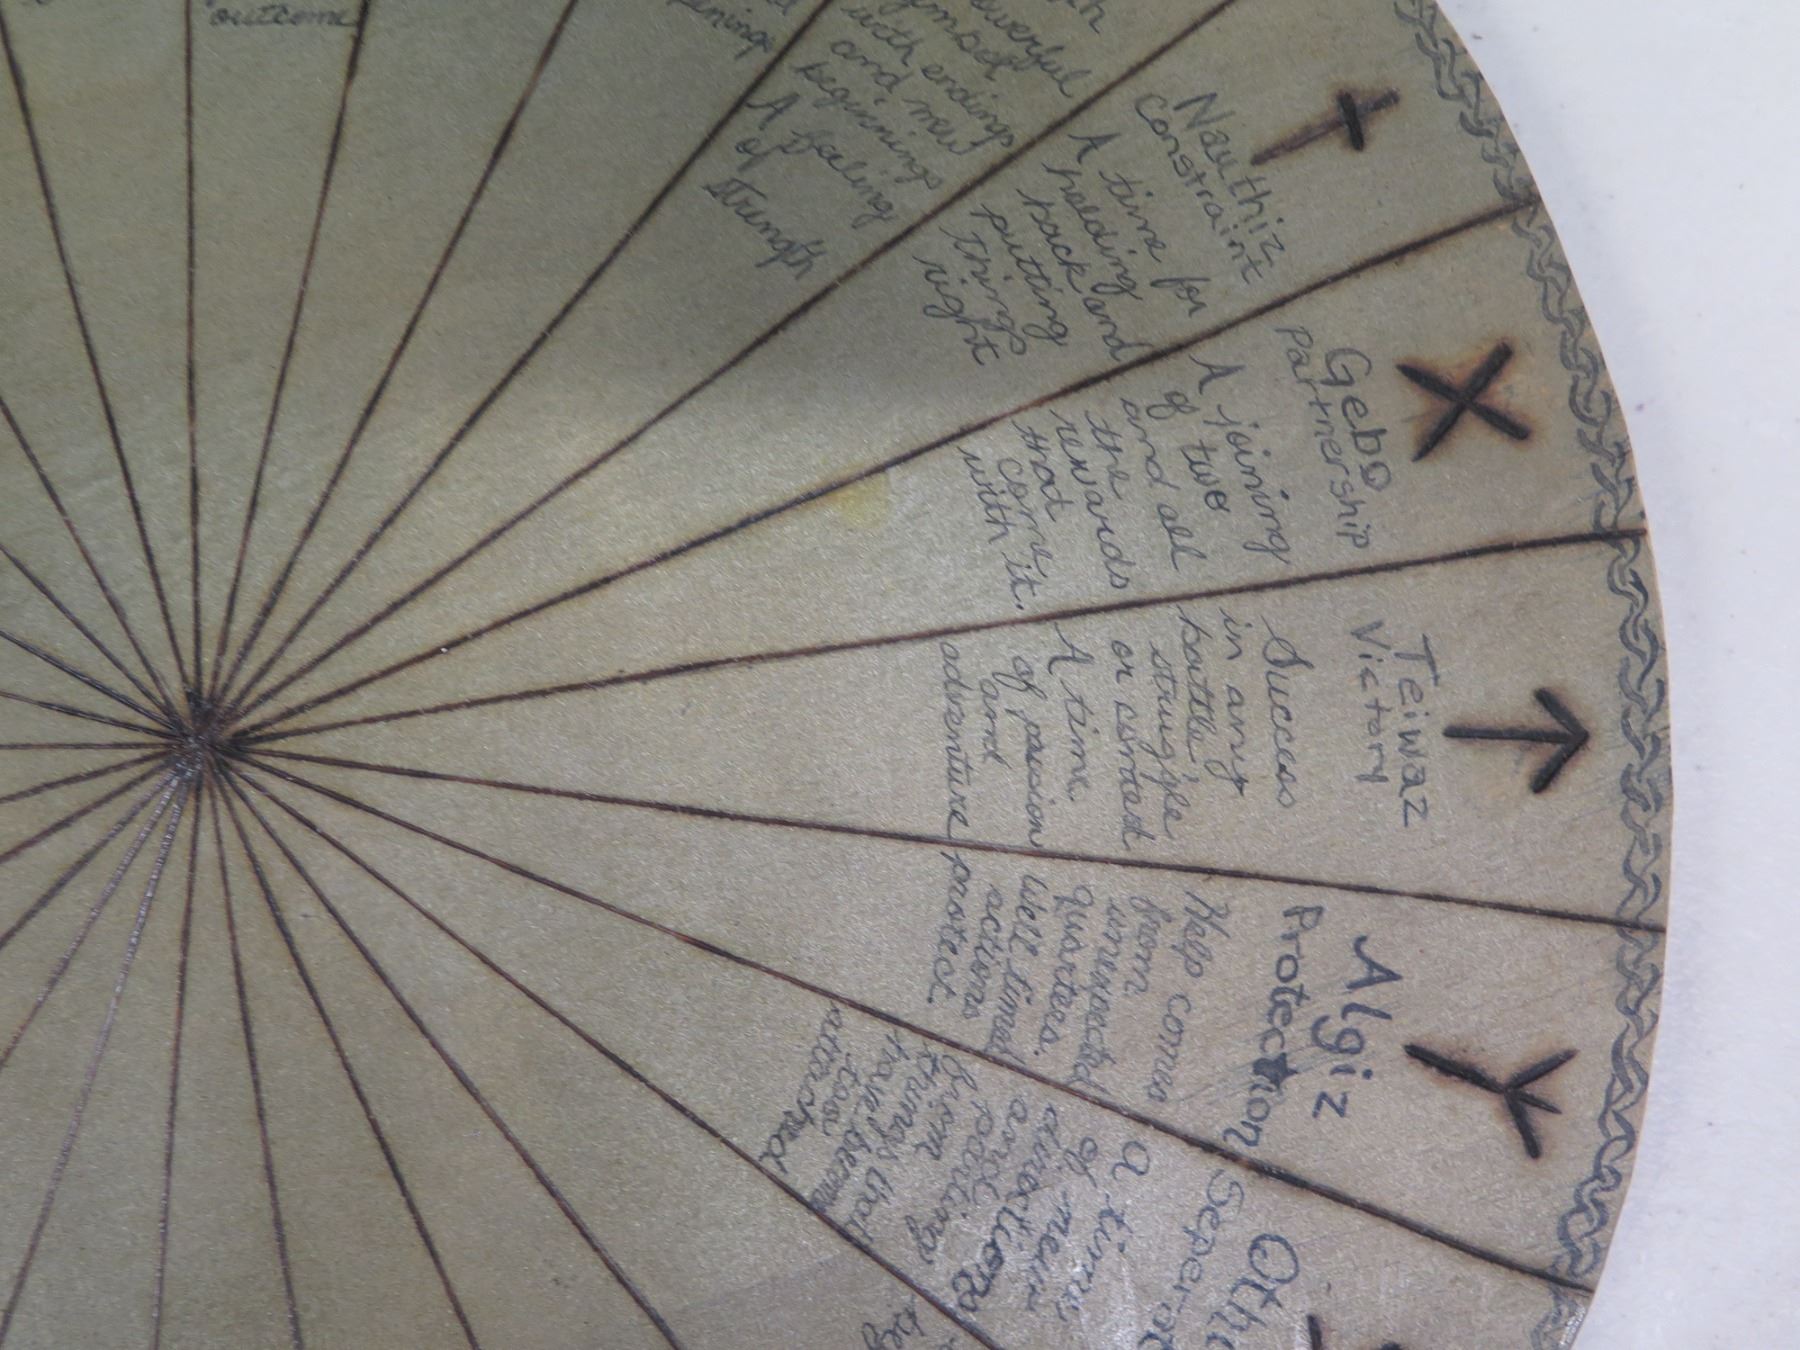 outcome
powerful
symbol
with endings
and new
beginnings
A feeling
of
strength
Nauthiz
Constraint
A time for
holding
back and
putting
things
right
Gebo
Partnership
A joining
of two
and all
the
rewards
that
come
with it.
Teiwaz
Victory
Success
in any
battle,
struggle
or contest
A time
of passion
and
adventure
Algiz
Protection
Help comes
from
unexpected
quarters.
Well timed
actions
protect.
A time
of new
directions
and
parting
from
things that
have become
too
attached